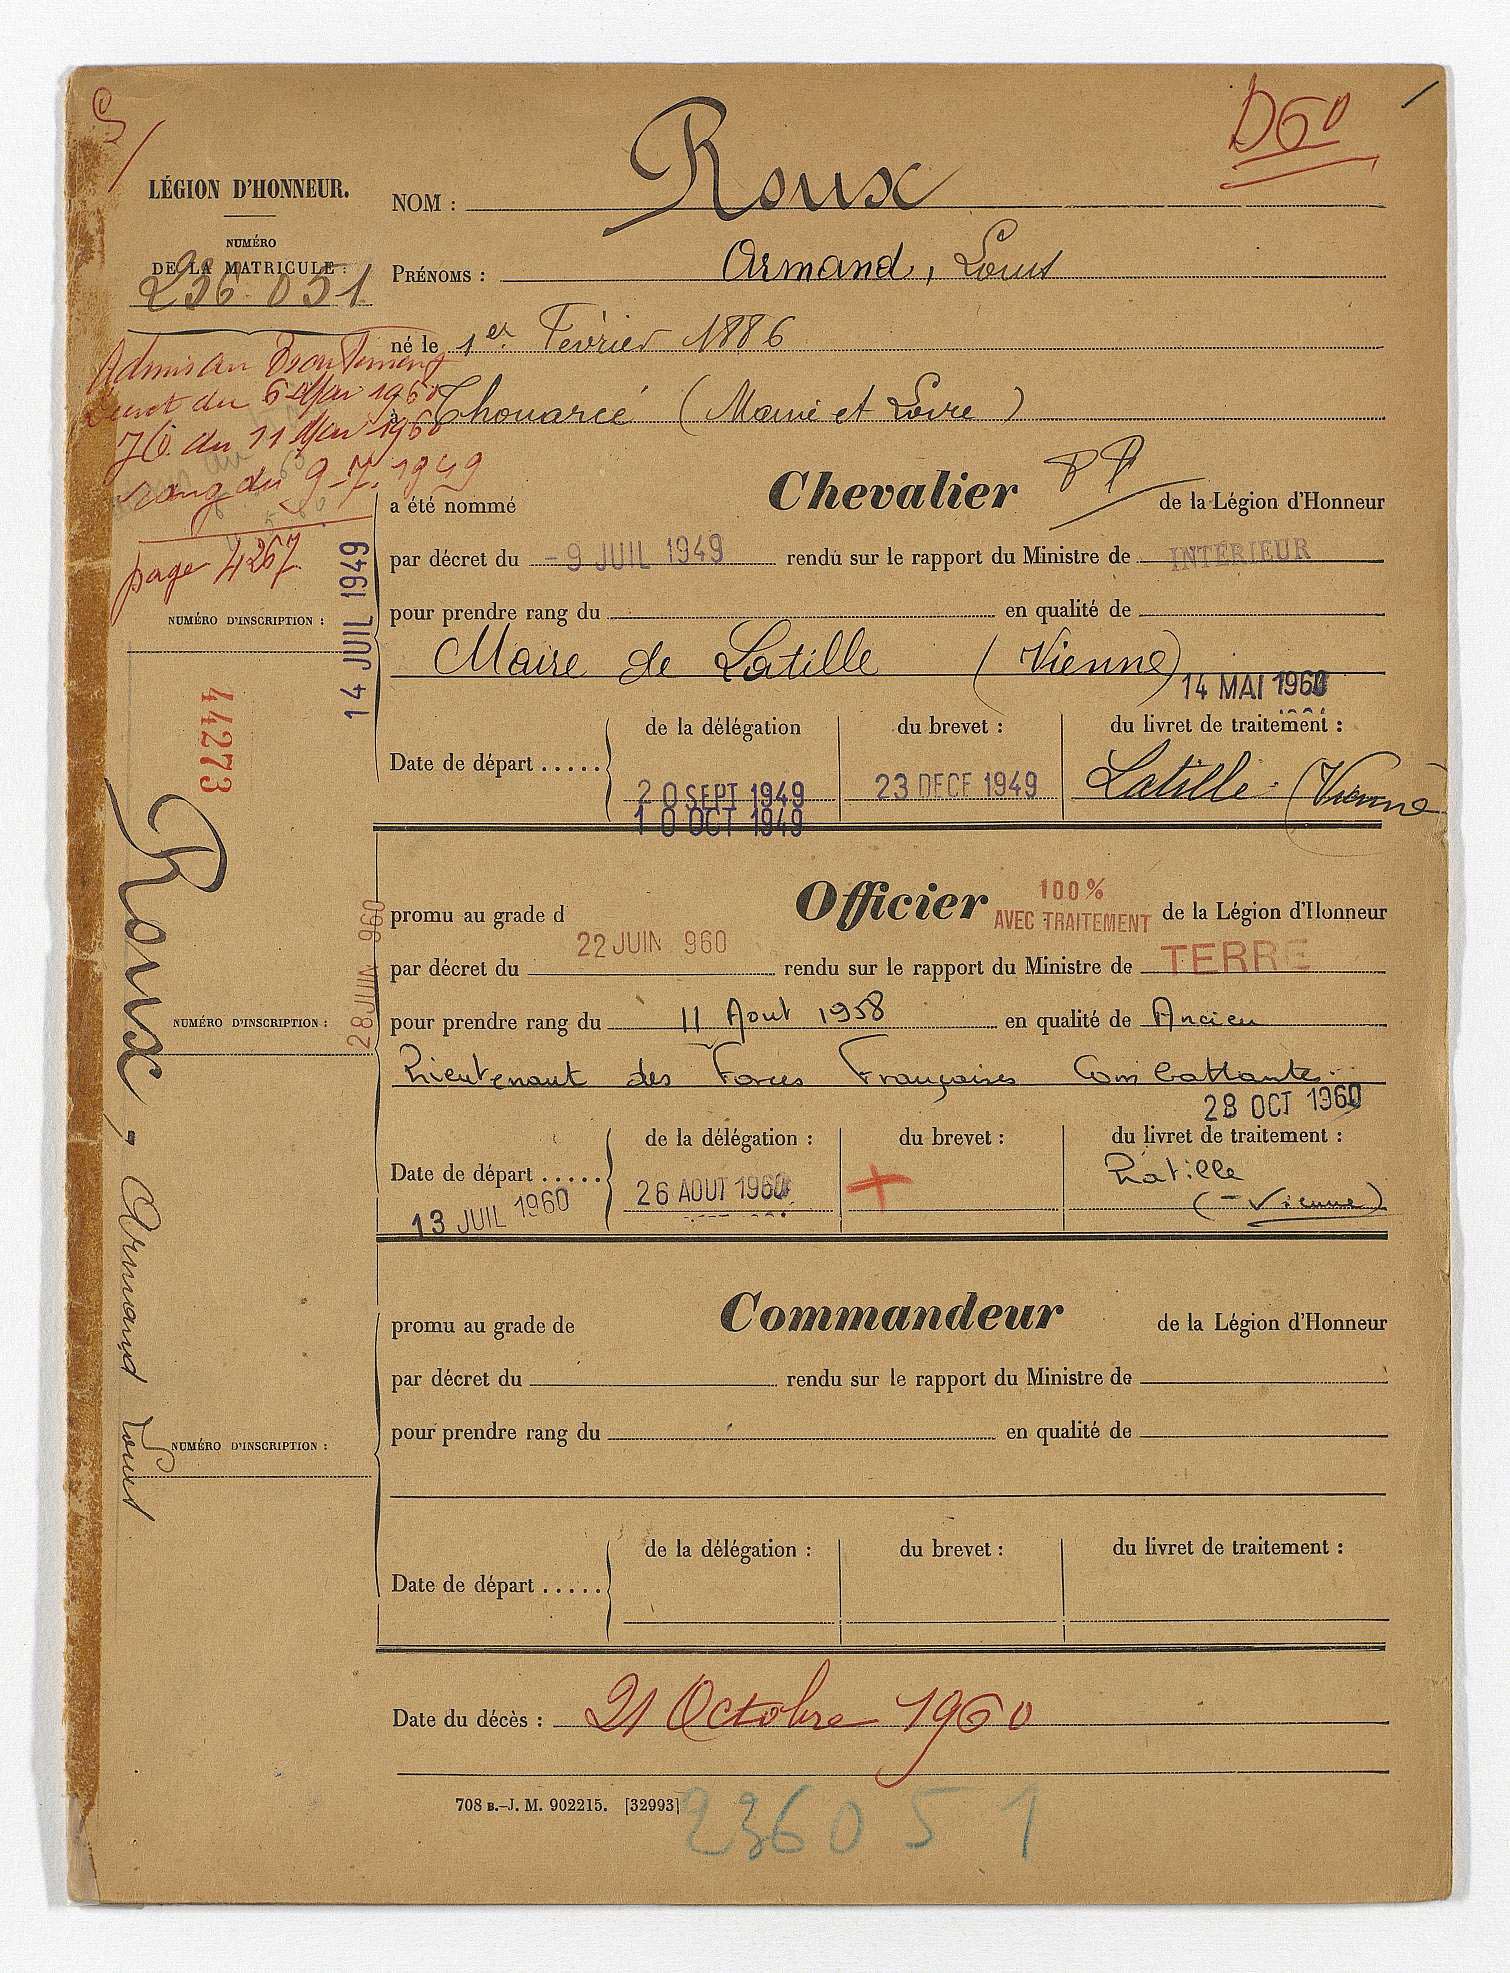 D60
LÉGION D'HONNEUR.
NUMÉRO
DE LA MATRICULE :
236 051
NOM : Roux
PRÉNOMS : Armand, Louis
né le 1er Février 1886
à Thouarcé (Maine et Loire)
Admis au Traitement
Décret du 6 Mai 1960
JO. du 11 Mai 1960
rang du 9-7-1949
page 4267
a été nommé Chevalier de la Légion d'Honneur
par décret du -9 JUIL 1949 rendu sur le rapport du Ministre de INTERIEUR
pour prendre rang du en qualité de
Maire de Latille (Vienne)
14 JUIL 1949
NUMÉRO D'INSCRIPTION :
44273
14 MAI 1960
de la délégation du brevet : du livret de traitement :
Date de départ .....
20 SEPT 1949 23 DECE 1949 Latille (Vienne
10 OCT 1949
promu au grade d Officier 100% AVEC TRAITEMENT de la Légion d'Honneur
par décret du 22 JUIN 960 rendu sur le rapport du Ministre de TERRE
pour prendre rang du 11 Aout 1958 en qualité de Ancien
Lieutenant des Forces Françaises Combattantes
28 JUIN 960
NUMÉRO D'INSCRIPTION :
28 OCT 1960
de la délégation : du brevet : du livret de traitement :
Date de départ .....
26 AOUT 1960 + Latille
(-Vienne)
13 JUIL 1960
Roux, Armand Louis
promu au grade de Commandeur de la Légion d'Honneur
par décret du rendu sur le rapport du Ministre de
pour prendre rang du en qualité de
NUMÉRO D'INSCRIPTION :
de la délégation : du brevet : du livret de traitement :
Date de départ .....
Date du décès : 21 Octobre 1960
708 B.-J. M. 902215. [32993]
236051